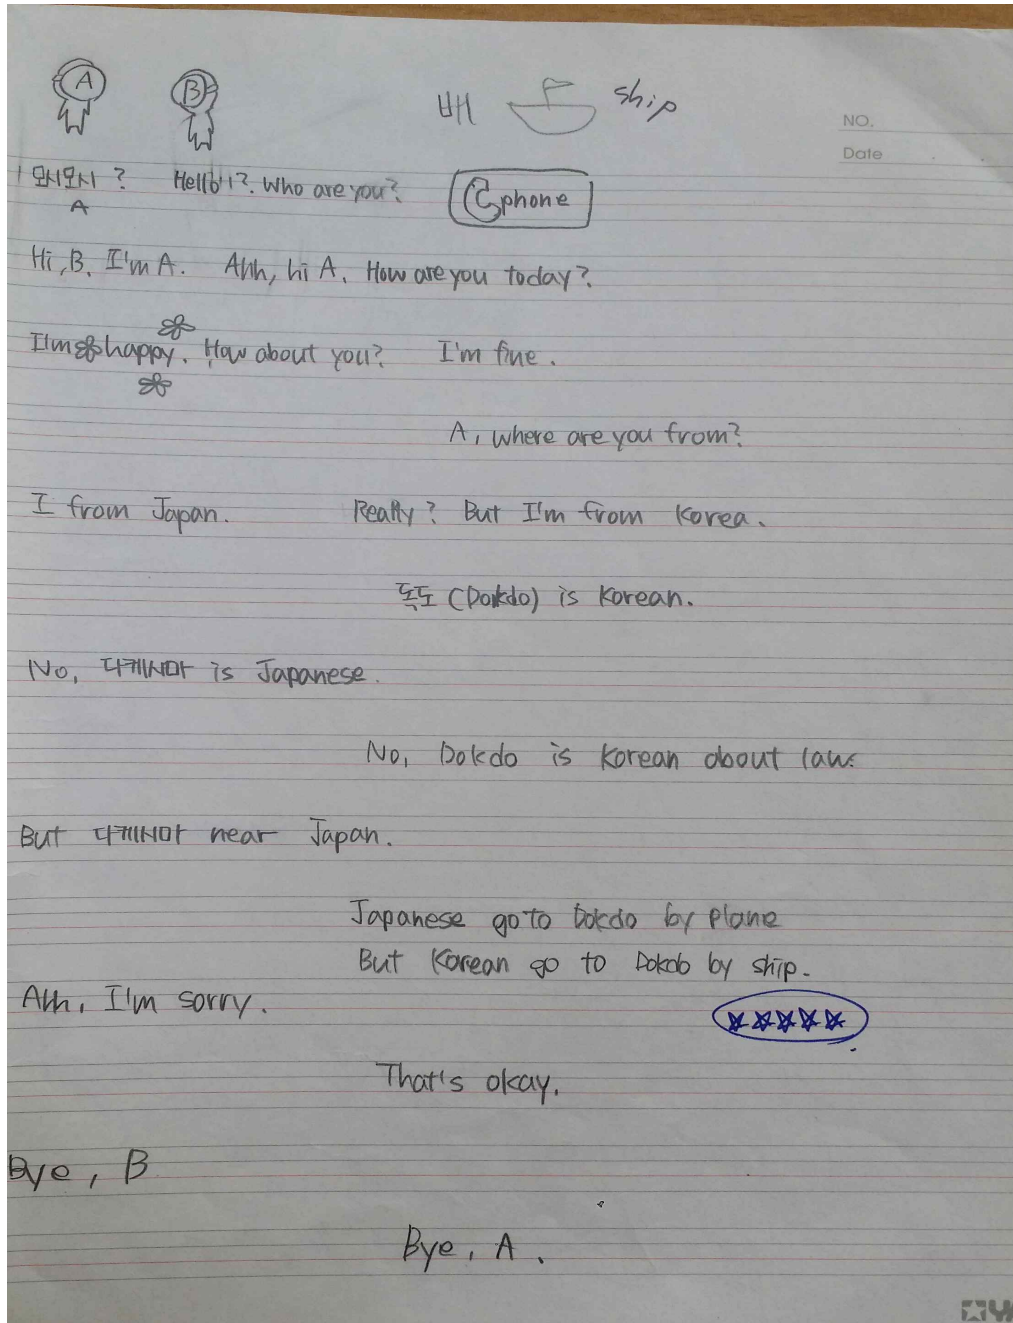 A B 배 ship
NO.
Date
모시모시? Hello!? Who are you? phone
A
Hi, B. I'm A. Ahh, hi A. How are you today?
I'm happy. How about you? I'm fine.
A, where are you from?
I from Japan. Really? But I'm from Korea.
독도 (Dokdo) is Korean.
No, 다케시마 is Japanese.
No, Dokdo is Korean about law.
But 다케시마 near Japan.
Japanese go to Dokdo by plane
But Korean go to Dokdo by ship.
Ahh, I'm sorry.
That's okay.
Bye, B
Bye, A.